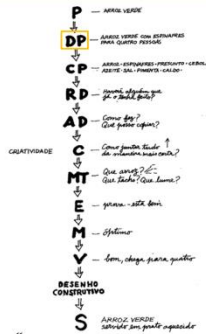 P - ARROZ VERDE
DP - ARROZ VERDE COM ESPINAFRES
PARA QUATRO PESSOAS
CP - ARROZ - ESPINAFRES - PRESUNTO - CEBOLA
AZEITE - SAL - PIMENTA - CALDO -
RD - Haverá alguém que
já o tenha feito?
AD - Como fez?
Que posso copiar?
CRIATIVIDADE
C - Como juntar tudo
da maneira mais certa?
MT - Que arroz?
Que tacho? Que lume?
E
M - prova - está bom
óptimo
V - bom, chega para quatro
DESENHO
CONSTRUTIVO
S ARROZ VERDE
servido em prato aquecido